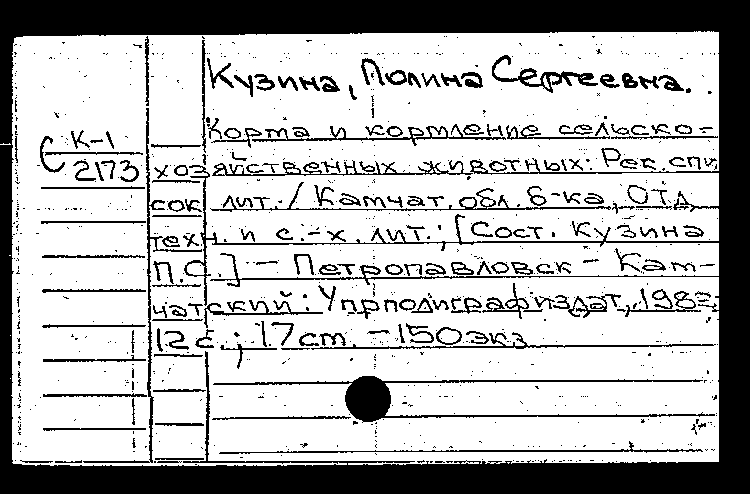 Кузина, Полина Сергеевна.
Корма и кормление сельско-
С К-1
2173
хозяйственных животных: Рек. спи
сок лит. / Камчат. обл. б-ка, Отд.
техн. и с.-х. лит.; [Сост. Кузина
П.С.] — Петропавловск - Кам-
чатский: Упрполиграфиздат,
12 с.; 17 cm. - 150 экз